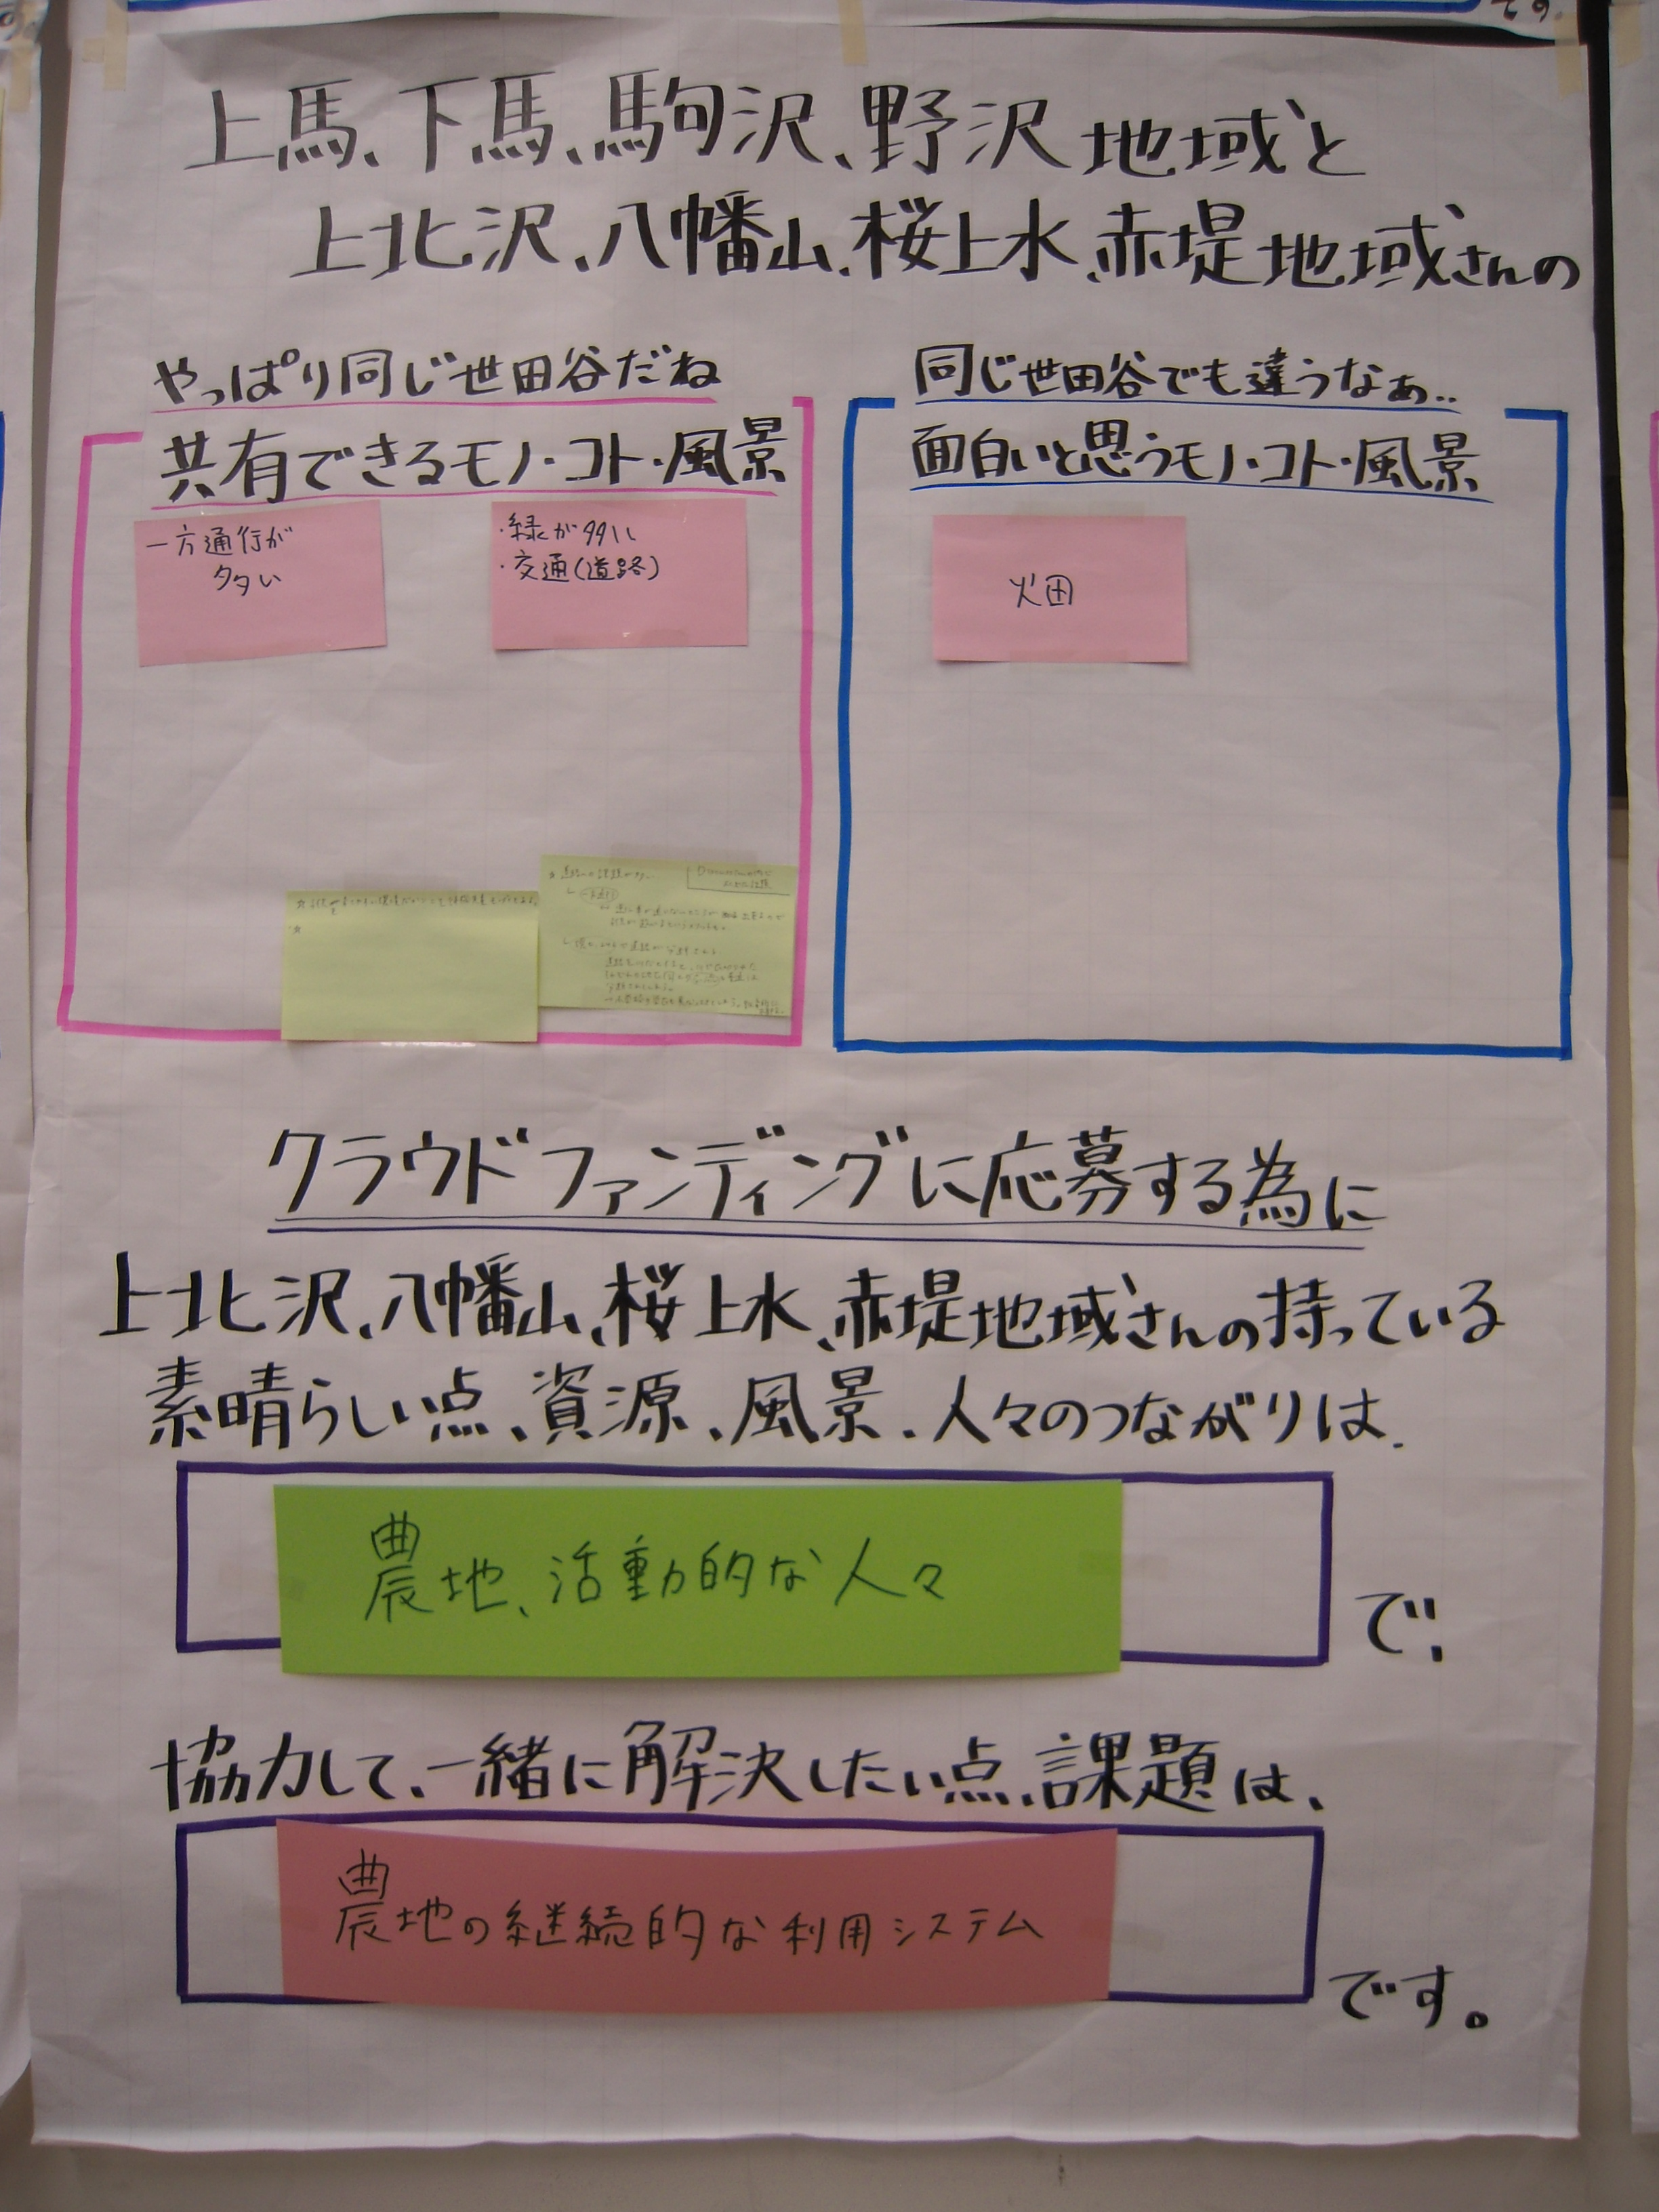 上馬、下馬、駒沢、野沢地域と
上北沢、八幡山、桜上水、赤堤地域さんの
やっぱり同じ世田谷だね
共有できるモノ・コト・風景
一方通行が
多い
・緑が多い
・交通(道路)
同じ世田谷でも違うなぁ..
面白いと思うモノ・コト・風景
畑
クラウドファンディングに応募する為に
上北沢、八幡山、桜上水、赤堤地域さんの持っている
素晴らしい点、資源、風景、人々のつながりは、
農地、活動的な人々
で、
協力して、一緒に解決したい点、課題は、
農地の継続的な利用システム
です。